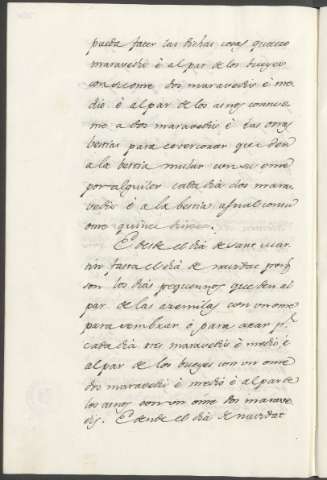 pueda facer las dichas cosas quatro
maravedis è al par de los bueyes
con su ome dos maravedis è me-
dio è al par de los asnos con un o-
me à dos maravedis è las otras
bestias para acarrear que den
a la bestia mular con su ome
por alquiler cada dia dos mara-
vedis è a la bestia asnal con su
ome quince dineros.
E desde el dia de sant Mar-
tin fasta el dia de navidat porq.
son los dias pequennos que den al
par de las azemilas con un ome
para sembrar ò para arar p.r
cada dia tres maravedis è medio, è
al par de los bueyes con un ome
dos maravedis è medio è al par de
los asnos con un ome dos marave-
dis. E desde el dia de navidat